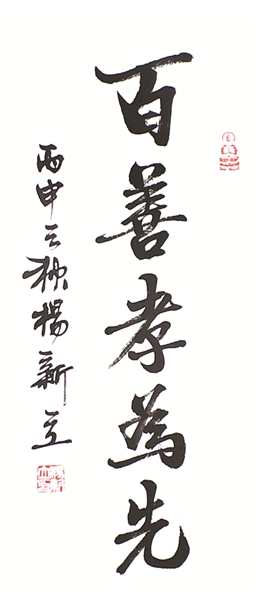 百善孝為先
丙申之秋楊新立